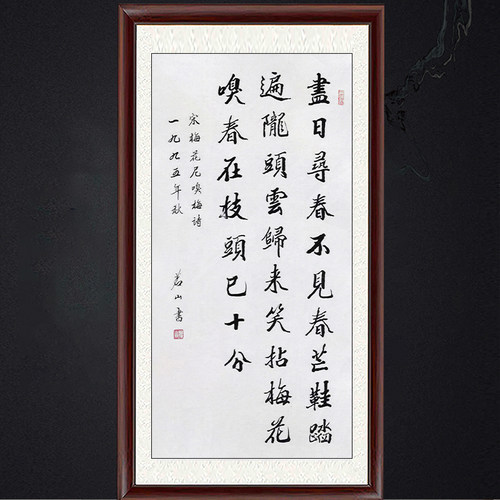 盡日尋春不見春芒鞋踏
遍隴頭雲歸来笑拈梅花
嗅春在枝頭已十分
宋梅花尼嗅梅詩
一九九五年秋
茗山書